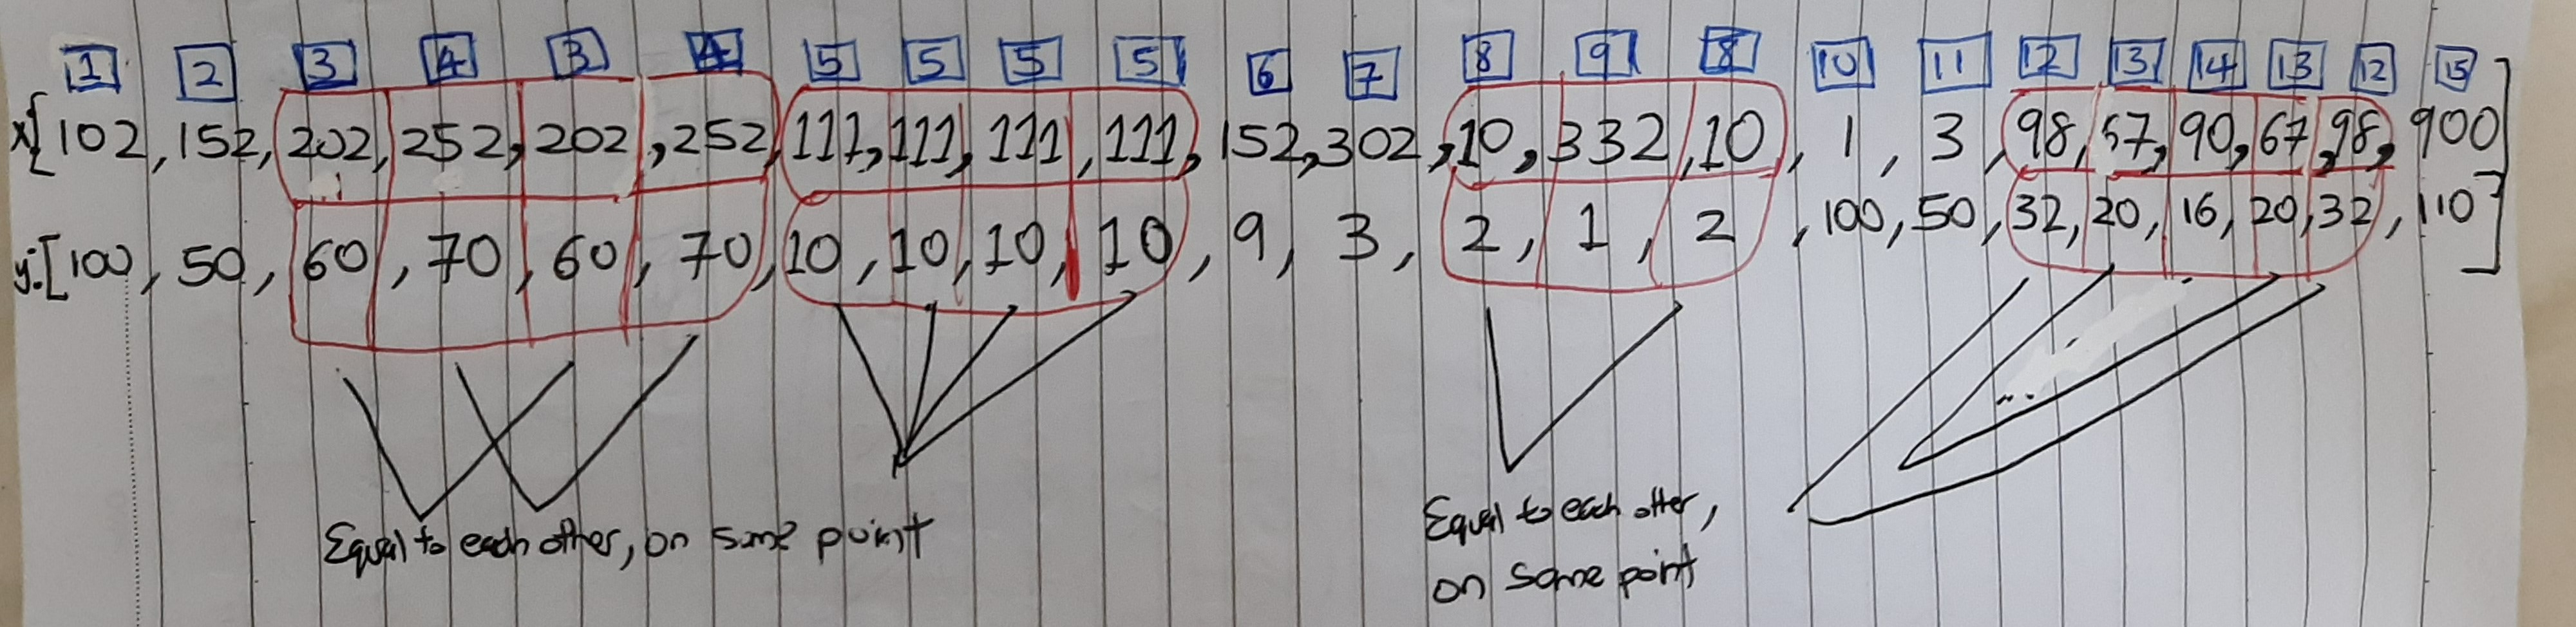 1 2 3 4 3 4 5 5 5 5 6 7 8 9 8 10 11 12 13 14 13 12 15
x[102, 152, 202, 252, 202, 252, 111, 111, 111, 111, 152, 302, 10, 332, 10, 1, 3, 98, 57, 90, 67, 98, 900]
y:[100, 50, 60, 70, 60, 70, 10, 10, 10, 10, 9, 3, 2, 1, 2, 100, 50, 32, 20, 16, 20, 32, 110]
Equal to each other, on same point
Equal to each other,
on same point